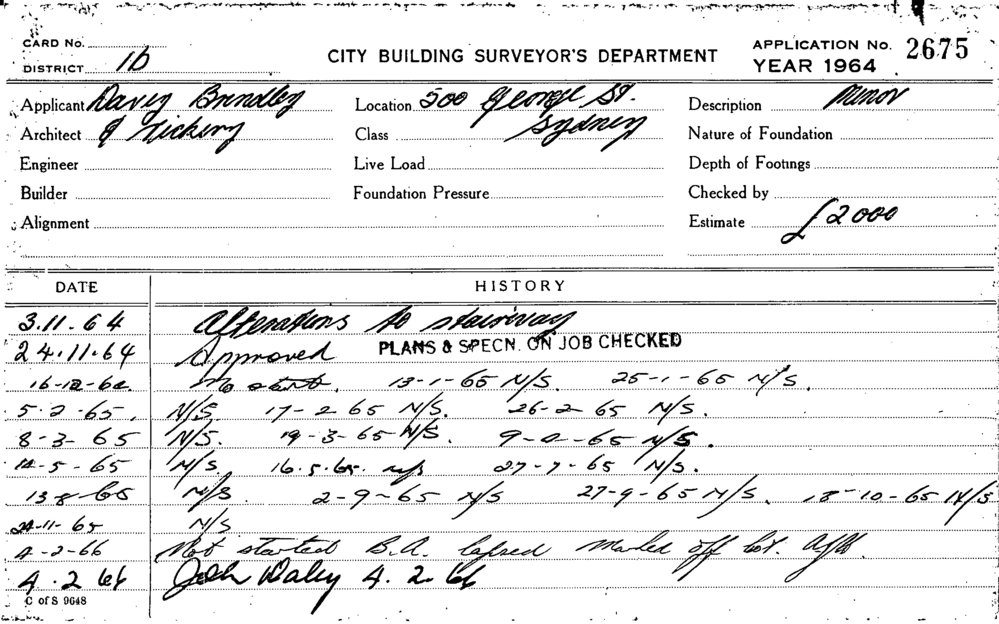 CARD No.
DISTRICT 1b
CITY BUILDING SURVEYOR'S DEPARTMENT
APPLICATION No. 2675
YEAR 1964
Applicant Davey Brindley
Architect & Vickery
Engineer
Builder
Alignment
Location 500 George St.
Class Sydney
Live Load
Foundation Pressure
Description Minor
Nature of Foundation
Depth of Footings
Checked by
Estimate £2000
DATE HISTORY
3.11.64 Alterations to stairway
24.11.64 Approved PLANS & SPECN. ON JOB CHECKED
16-12-64 No start. 13-1-65 N/S. 25-1-65 N/S.
5.2.65. N/S. 17-2-65 N/S. 26-2-65 N/S.
8-3-65 N/S. 19-3-65 N/S. 65 N/S.
5-65 N/S. 16.5.65. N/S 27-7-65 N/S.
13 8-65 N/S. 2-9-65 N/S 27-9-65 N/S. 18-10-65 N/S
24-11-65 N/S
4-2-66 Not started B.A. lapsed Marked off
4.2 66 John Daley 4.2.66
C of S 9648